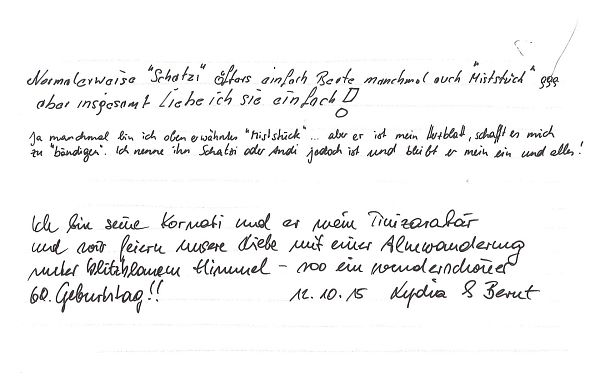 Normalerweise "Schatzi" öfters einfach Beate manchmal auch "Miststück" ggg
aber insgesamt Liebe ich sie einfach!
Ja manchmal bin ich oben erwähntes "Miststück"... aber er ist mein Herzblatt, schafft es mich
zu "bändigen". Ich nenne ihn Schatzi oder Andi jedoch ist und bleibt er mein ein und alles!
Ich bin seine Kornati und er mein
und wir feiern unsere Liebe mit einer Almwanderung
unter blitzblauem Himmel - soo ein wunderschöner
60. Geburtstag!! 12.10.15 Lydia & Bernt